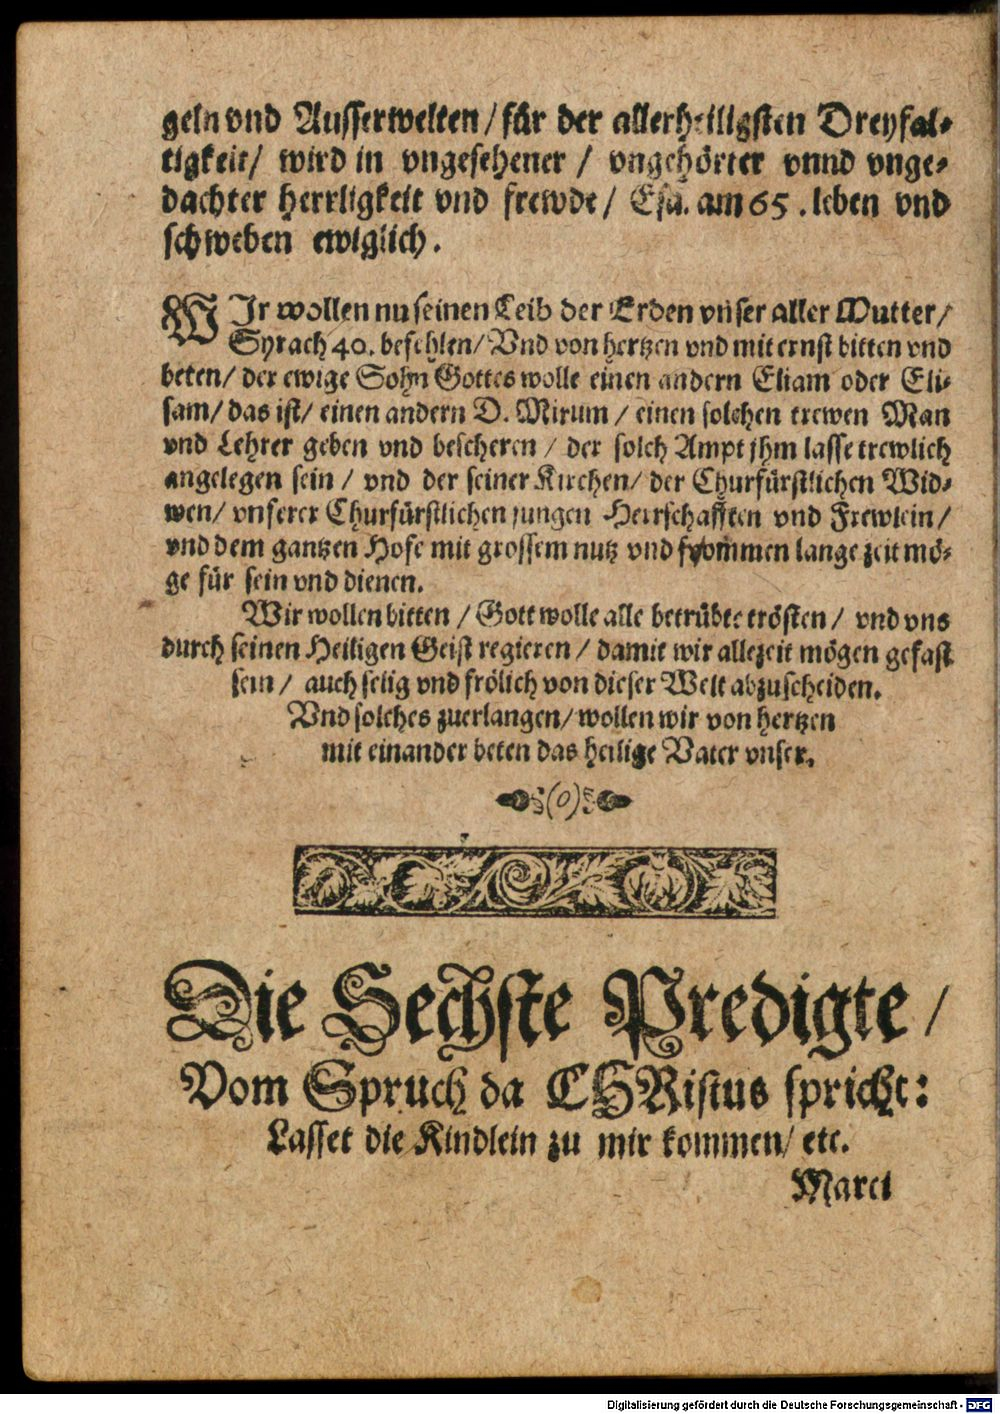 geln vnd Ausserwelten / für der allerheiligsten Dreyfal-
tigkeit / wird in vngesehener / vngehörter vnnd vnge-
dachter herrligkeit vnd frewde / Esa. am 65. leben vnd
schweben ewiglich.
WJr wollen nu seinen Leib der Erden vnser aller Mutter /
Syrach 40. befehlen / Vnd von hertzen vnd mit ernst bitten vnd
beten / der ewige Sohn Gottes wolle einen andern Eliam oder Eli-
sam / das ist / einen andern D. Mirum / einen solchen trewen Man
vnd Lehrer geben vnd bescheren / der solch Ampt jhm lasse trewlich
angelegen sein / vnd der seiner Kirchen / der Churfürstlichen Wid-
wen / vnserer Churfürstlichen jungen Herrschafften vnd Frewlein /
vnd dem gantzen Hofe mit grossem nutz vnd frommen lange zeit mö-
ge für sein vnd dienen.
Wir wollen bitten / Gott wolle alle betrübte trösten / vnd vns
durch seinen Heiligen Geist regieren / damit wir allezeit mögen gefast
sein / auch selig vnd frölich von dieser Welt abzuscheiden.
Vnd solches zuerlangen / wollen wir von hertzen
mit einander beten das heilige Vater vnser.
(o)
Die Sechste Predigte /
Vom Spruch da CHRistus spricht:
Lasset die Kindlein zu mir kommen / etc.
Marci
Digitalisierung gefördert durch die Deutsche Forschungsgemeinschaft - DFG